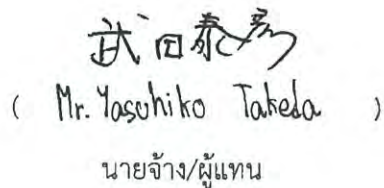 武田泰彦
( Mr. Yasuhiko Takeda )
นายจ้าง/ผู้แทน